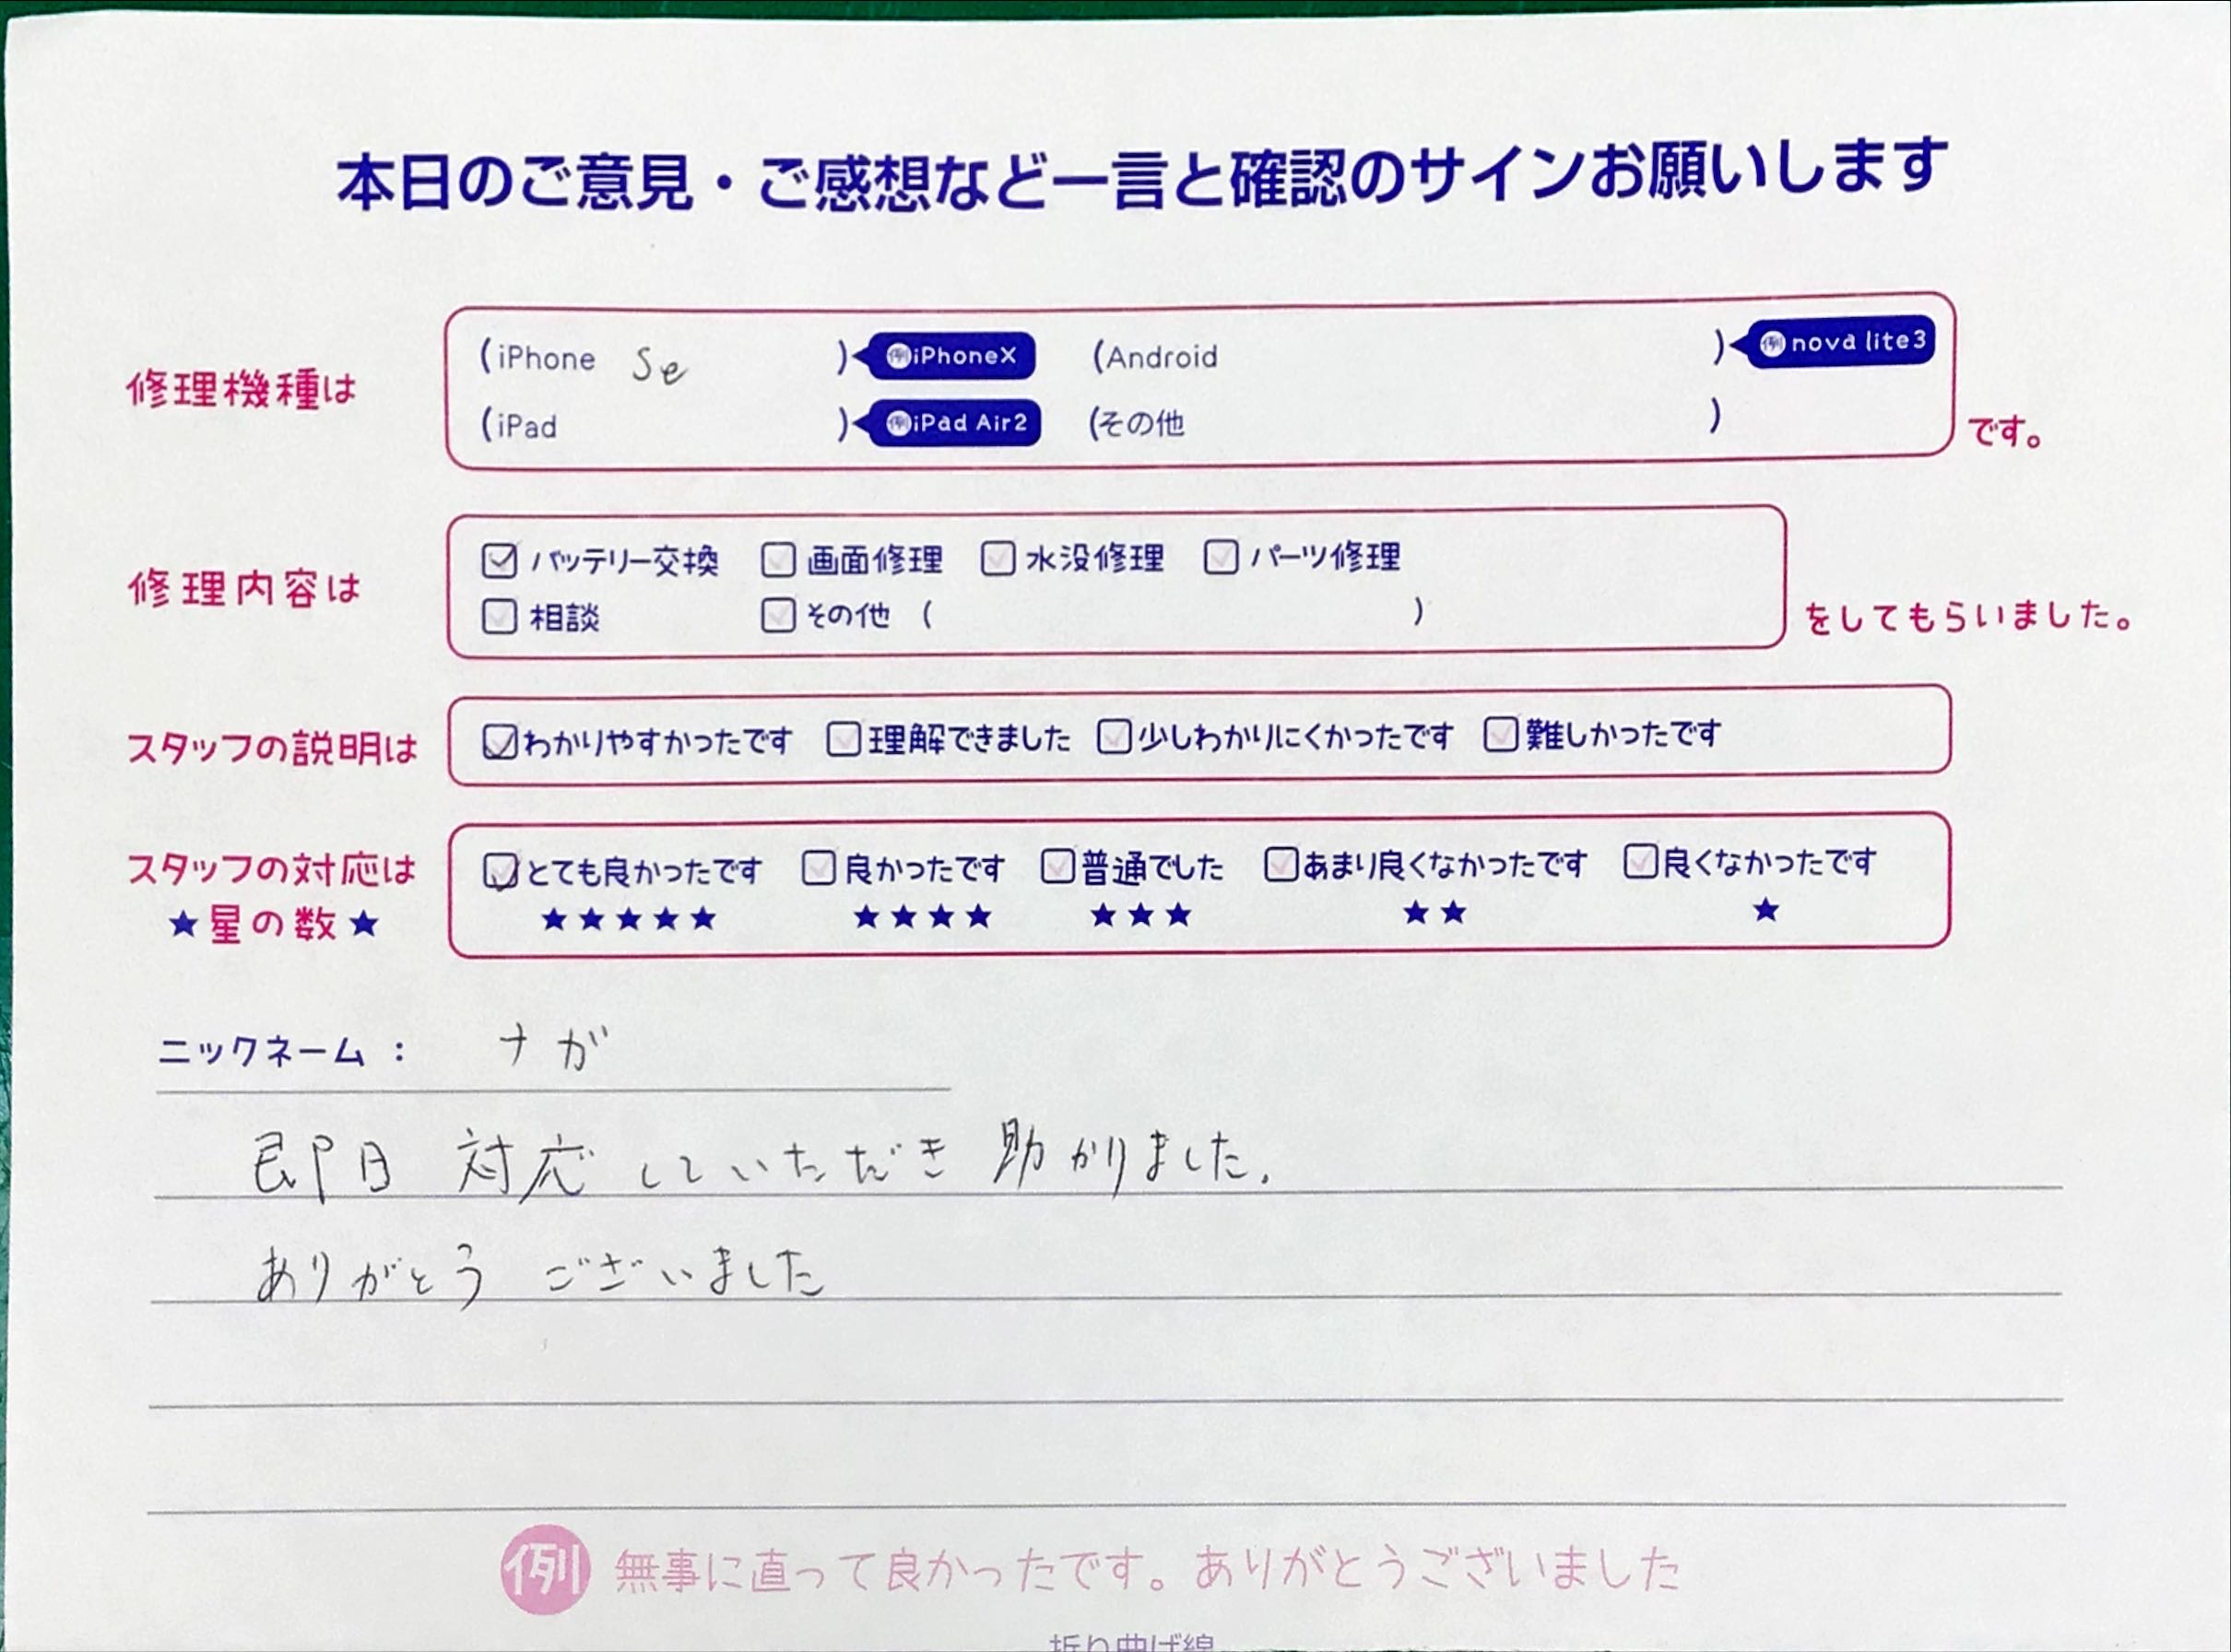 本日のご意見・ご感想など一言と確認のサインお願いします
修理機種は
(iPhone Se ) 例iPhoneX (Android ) 例nova lite3
(iPad ) 例iPad Air2 (その他 ) です。
修理内容は
☑バッテリー交換 □画面修理 □水没修理 □パーツ修理
□相談 □その他 ( ) をしてもらいました。
スタッフの説明は ☑わかりやすかったです □理解できました □少しわかりにくかったです □難しかったです
スタッフの対応は ☑とても良かったです □良かったです □普通でした □あまり良くなかったです □良くなかったです
★星の数★ ★★★★★ ★★★★ ★★★ ★★ ★
ニックネーム： ナガ
即日 対応していただき 助かりました.
ありがとう ございました
例 無事に直って良かったです。ありがとうございました
折り曲げ線